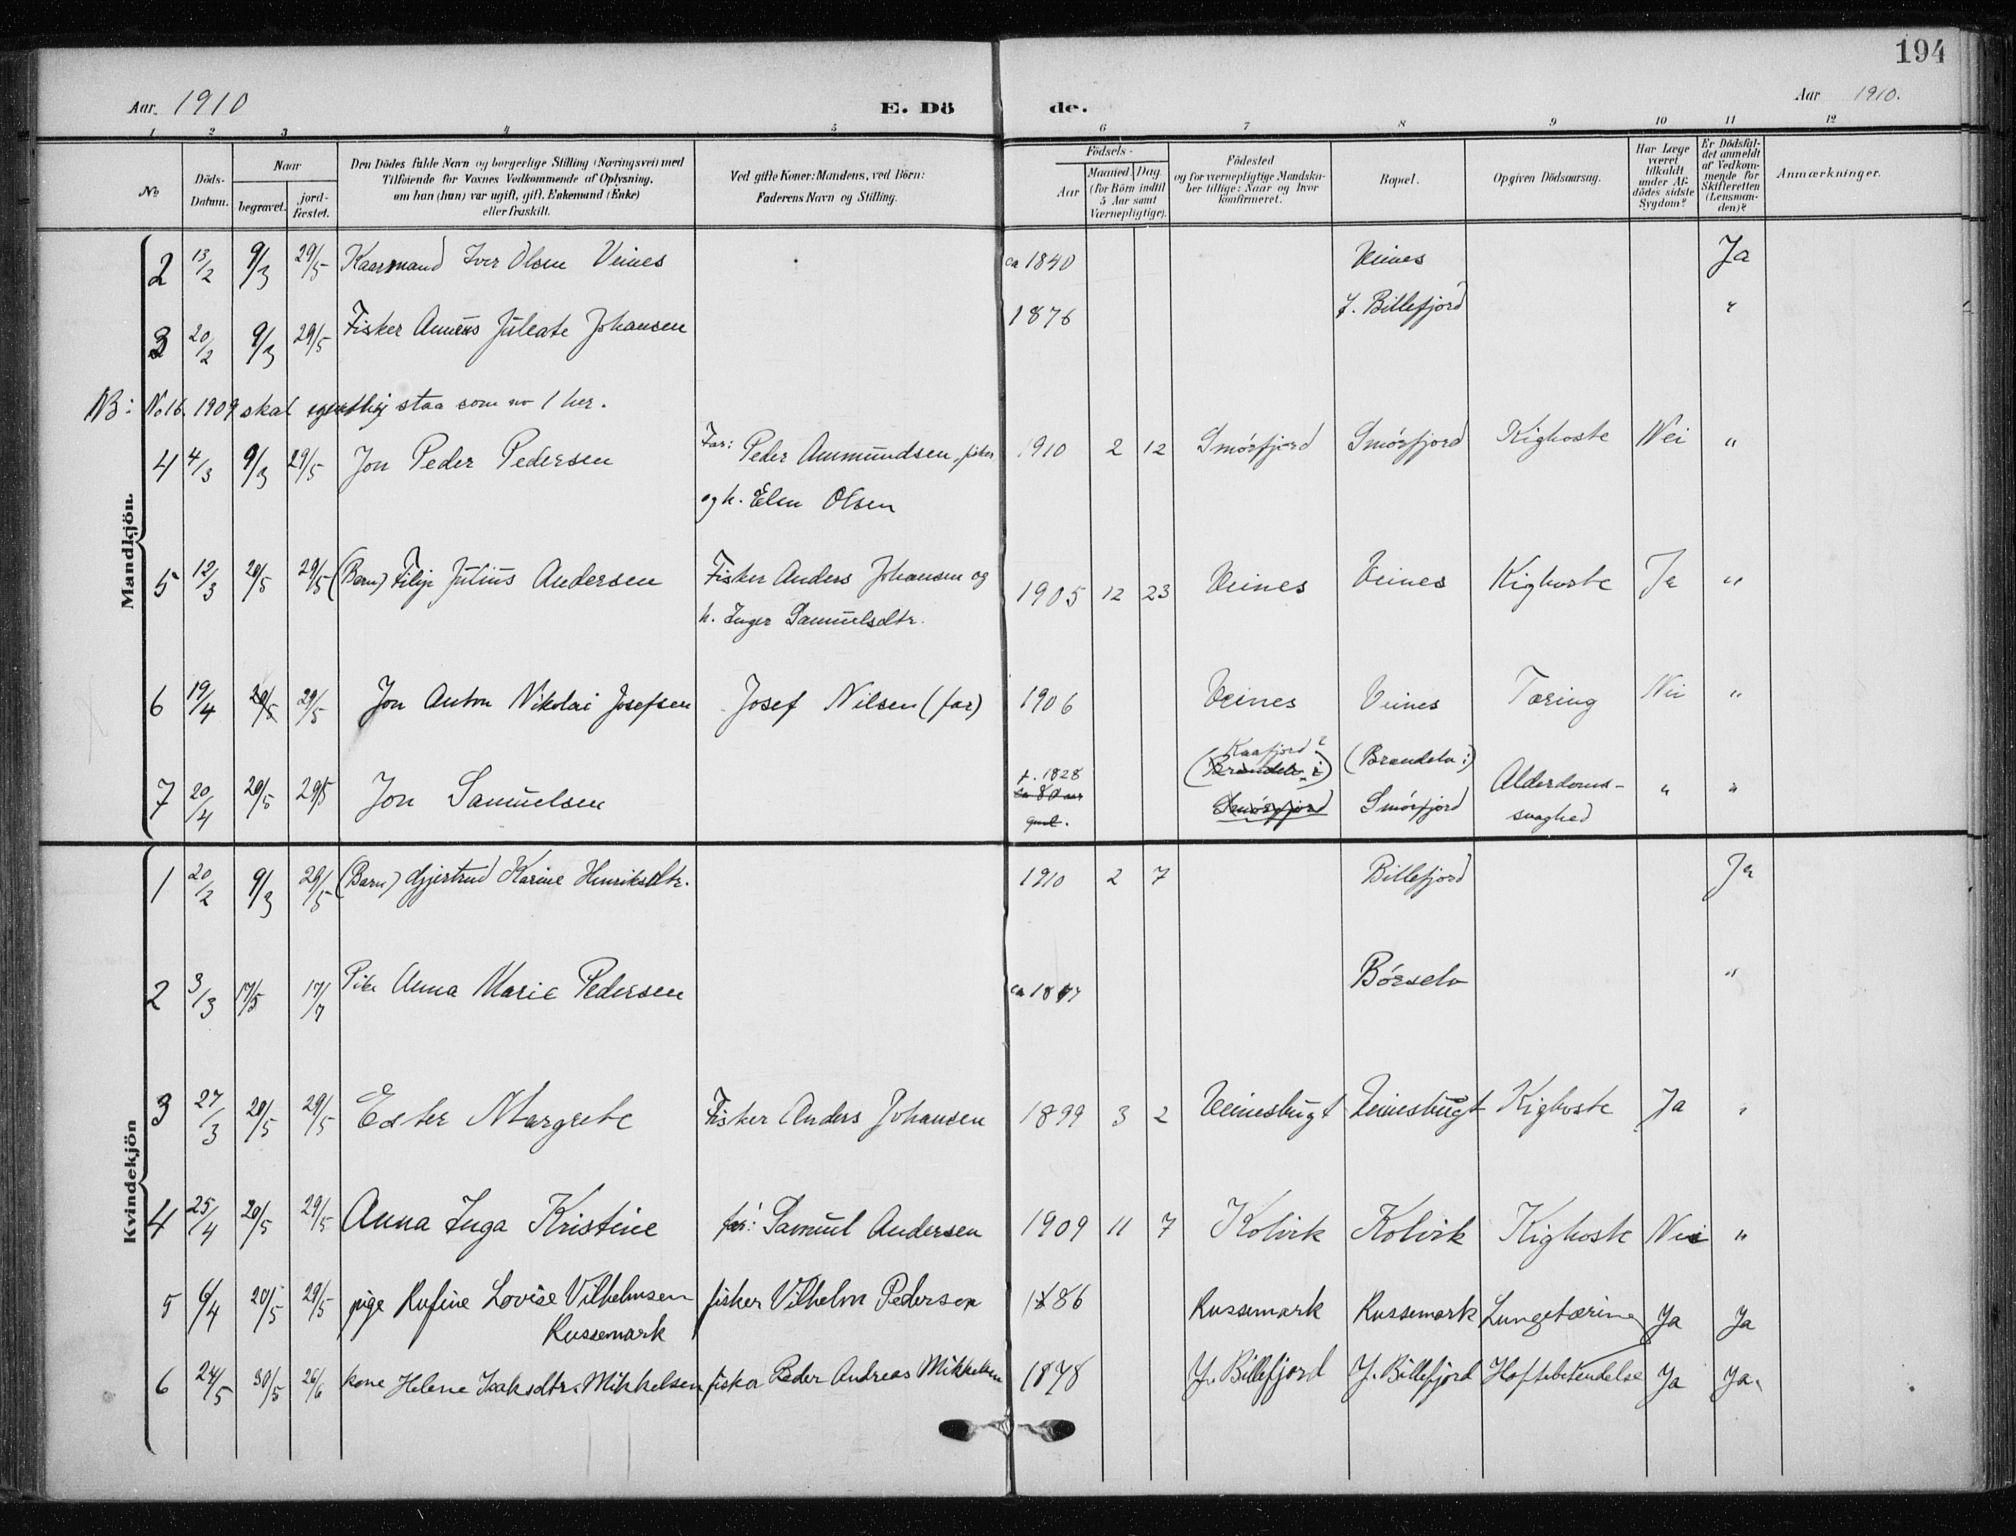 194
Aar. 1910 E. Dö de. Aar 1910.
1 2 3 4 5 6 7 8 9 10 11 12
No Döds-Datum. Naar begravet. jord-fæstet. Den Dödes fulde Navn og borgerlige Stilling (Næringsvei) med Tilföiende for Voxnes Vedkommende af Oplysning, om han (hun) var ugift, gift, Enkemand (Enke) eller fraskilt. Ved gifte Koner: Mandens, ved Börn: Faderens Navn og Stilling. Födsels- Aar Maaned Dag (for Börn indtil 5 Aar samt Værnepligtige). Födested og for værnepligtige Mandska-ber tillige: Naar og hvor konfirmeret. Bopæl. Opgiven Dödsaarsag. Har Læge været tilkaldt under Af-dödes sidste Sygdom? Er Dödsfal-det anmeldt af Vedkom-mende for Skifteretten (Lensman-den)? Anmærkninger.
Mandkjön.
2 13/2 9/3 29/5 Kaarmand Iver Olsen Veines ca 1840 Veines Ja
3 20/2 9/3 29/5 Fisker Johansen 1876 Y. Billefjord "
NB: No 16. 1909 skal egentlig staa som no 1 her.
4 4/3 9/3 29/5 Jon Peder Pedersen Far: Peder Ammundsen, fisker 1910 2 12 Smörfjord Smörfjord Kighoste Nei "
og h. Elen Olsen
5 12/3 20/5 29/5 (Barn) Filip Julius Andersen Fisker Anders Johansen og 1905 12 23 Veines Veines Kighoste Ja "
h. Inger Samuelsdtr.
6 19/4 20/5 29/5 Jon Anton Nikolai Josefsen Josef Nilsen (far) 1906 Veines Veines Tæring Nei "
f. 1828 Kaafjord? (Brændelv i) (Brændelv i)
7 20/4 20/5 29/5 Jon Samuelsen ca 80 aar gml. Smörfjord Smörfjord Alderdoms- " "
svaghed
Kvindekjön
1 20/2 9/3 29/5 (Barn) Gjertrud Karine Henriksdtr. 1910 2 7 Billefjord Ja
2 3/3 17/5 17/7 Pike Anna Marie Pedersen Börselv "
3 27/3 20/5 29/5 Ester Margrete Fisker Anders Johansen 1899 3 2 Veinesbugt Veinesbugt Kighoste Ja "
4 25/4 20/5 29/5 Anna Inga Kristine far: Samuel Andersen 1909 11 7 Kolvik Kolvik Kighoste Nei "
5 6/4 20/5 29/5 pige Rufine Lovise Vilhelmsen fisker Vilhelm Pedersen 1886 Russemark Russemark Lungetæring Ja Ja
Russemark
6 24/5 30/5 26/6 kone Helene Isaksdtr. Mikkelsen fisker Peder Andreas Mikkelsen 1878 Y. Billefjord Y. Billefjord Hoftebetendelse Ja Ja.